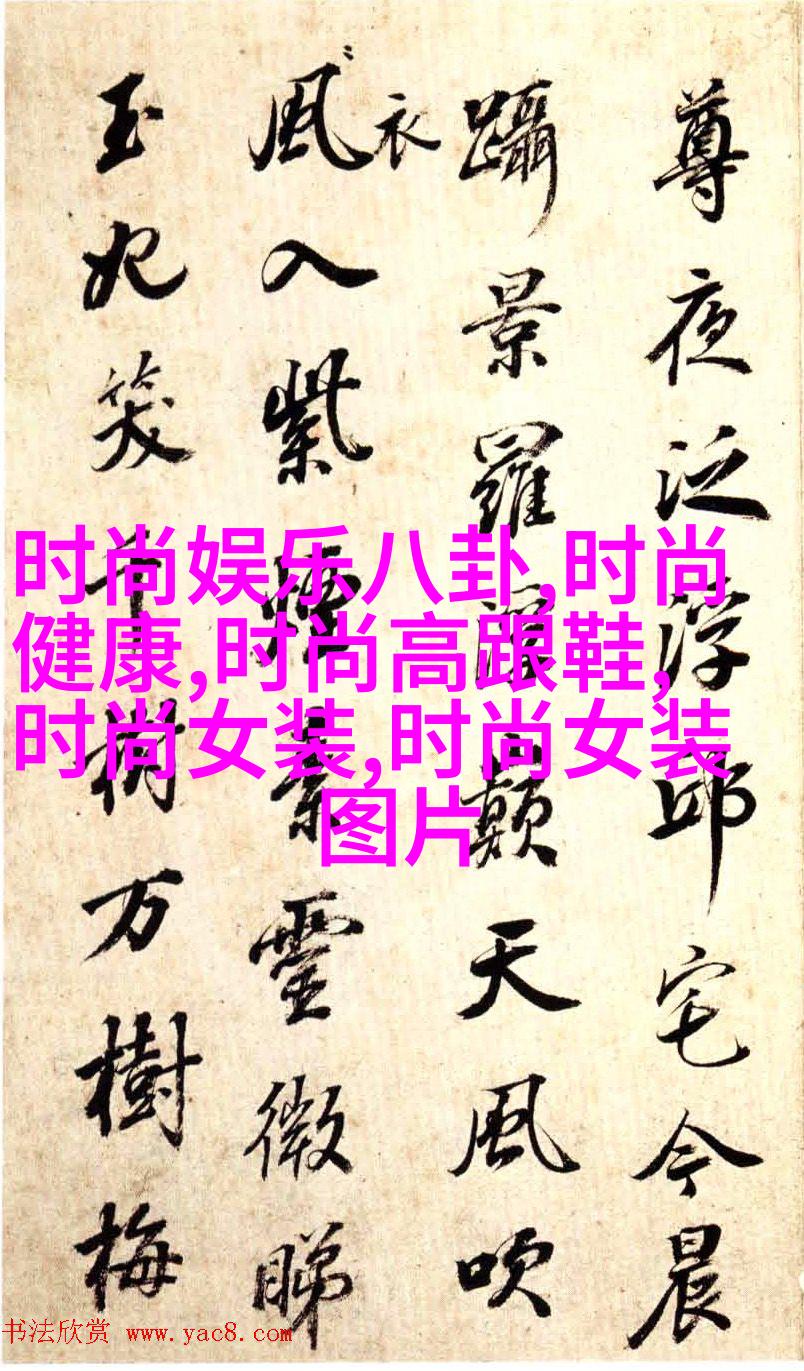 尊夜泛浮邱宅今晨
躡景羅浮巔天風吹
衣
風入紫煙衆靈微睇
玉妃笑千樹万樹梅
时尚娱乐八卦,时尚
健康,时尚高跟鞋,
时尚女装,时尚女装
图片
书法欣赏 www.yac8.com